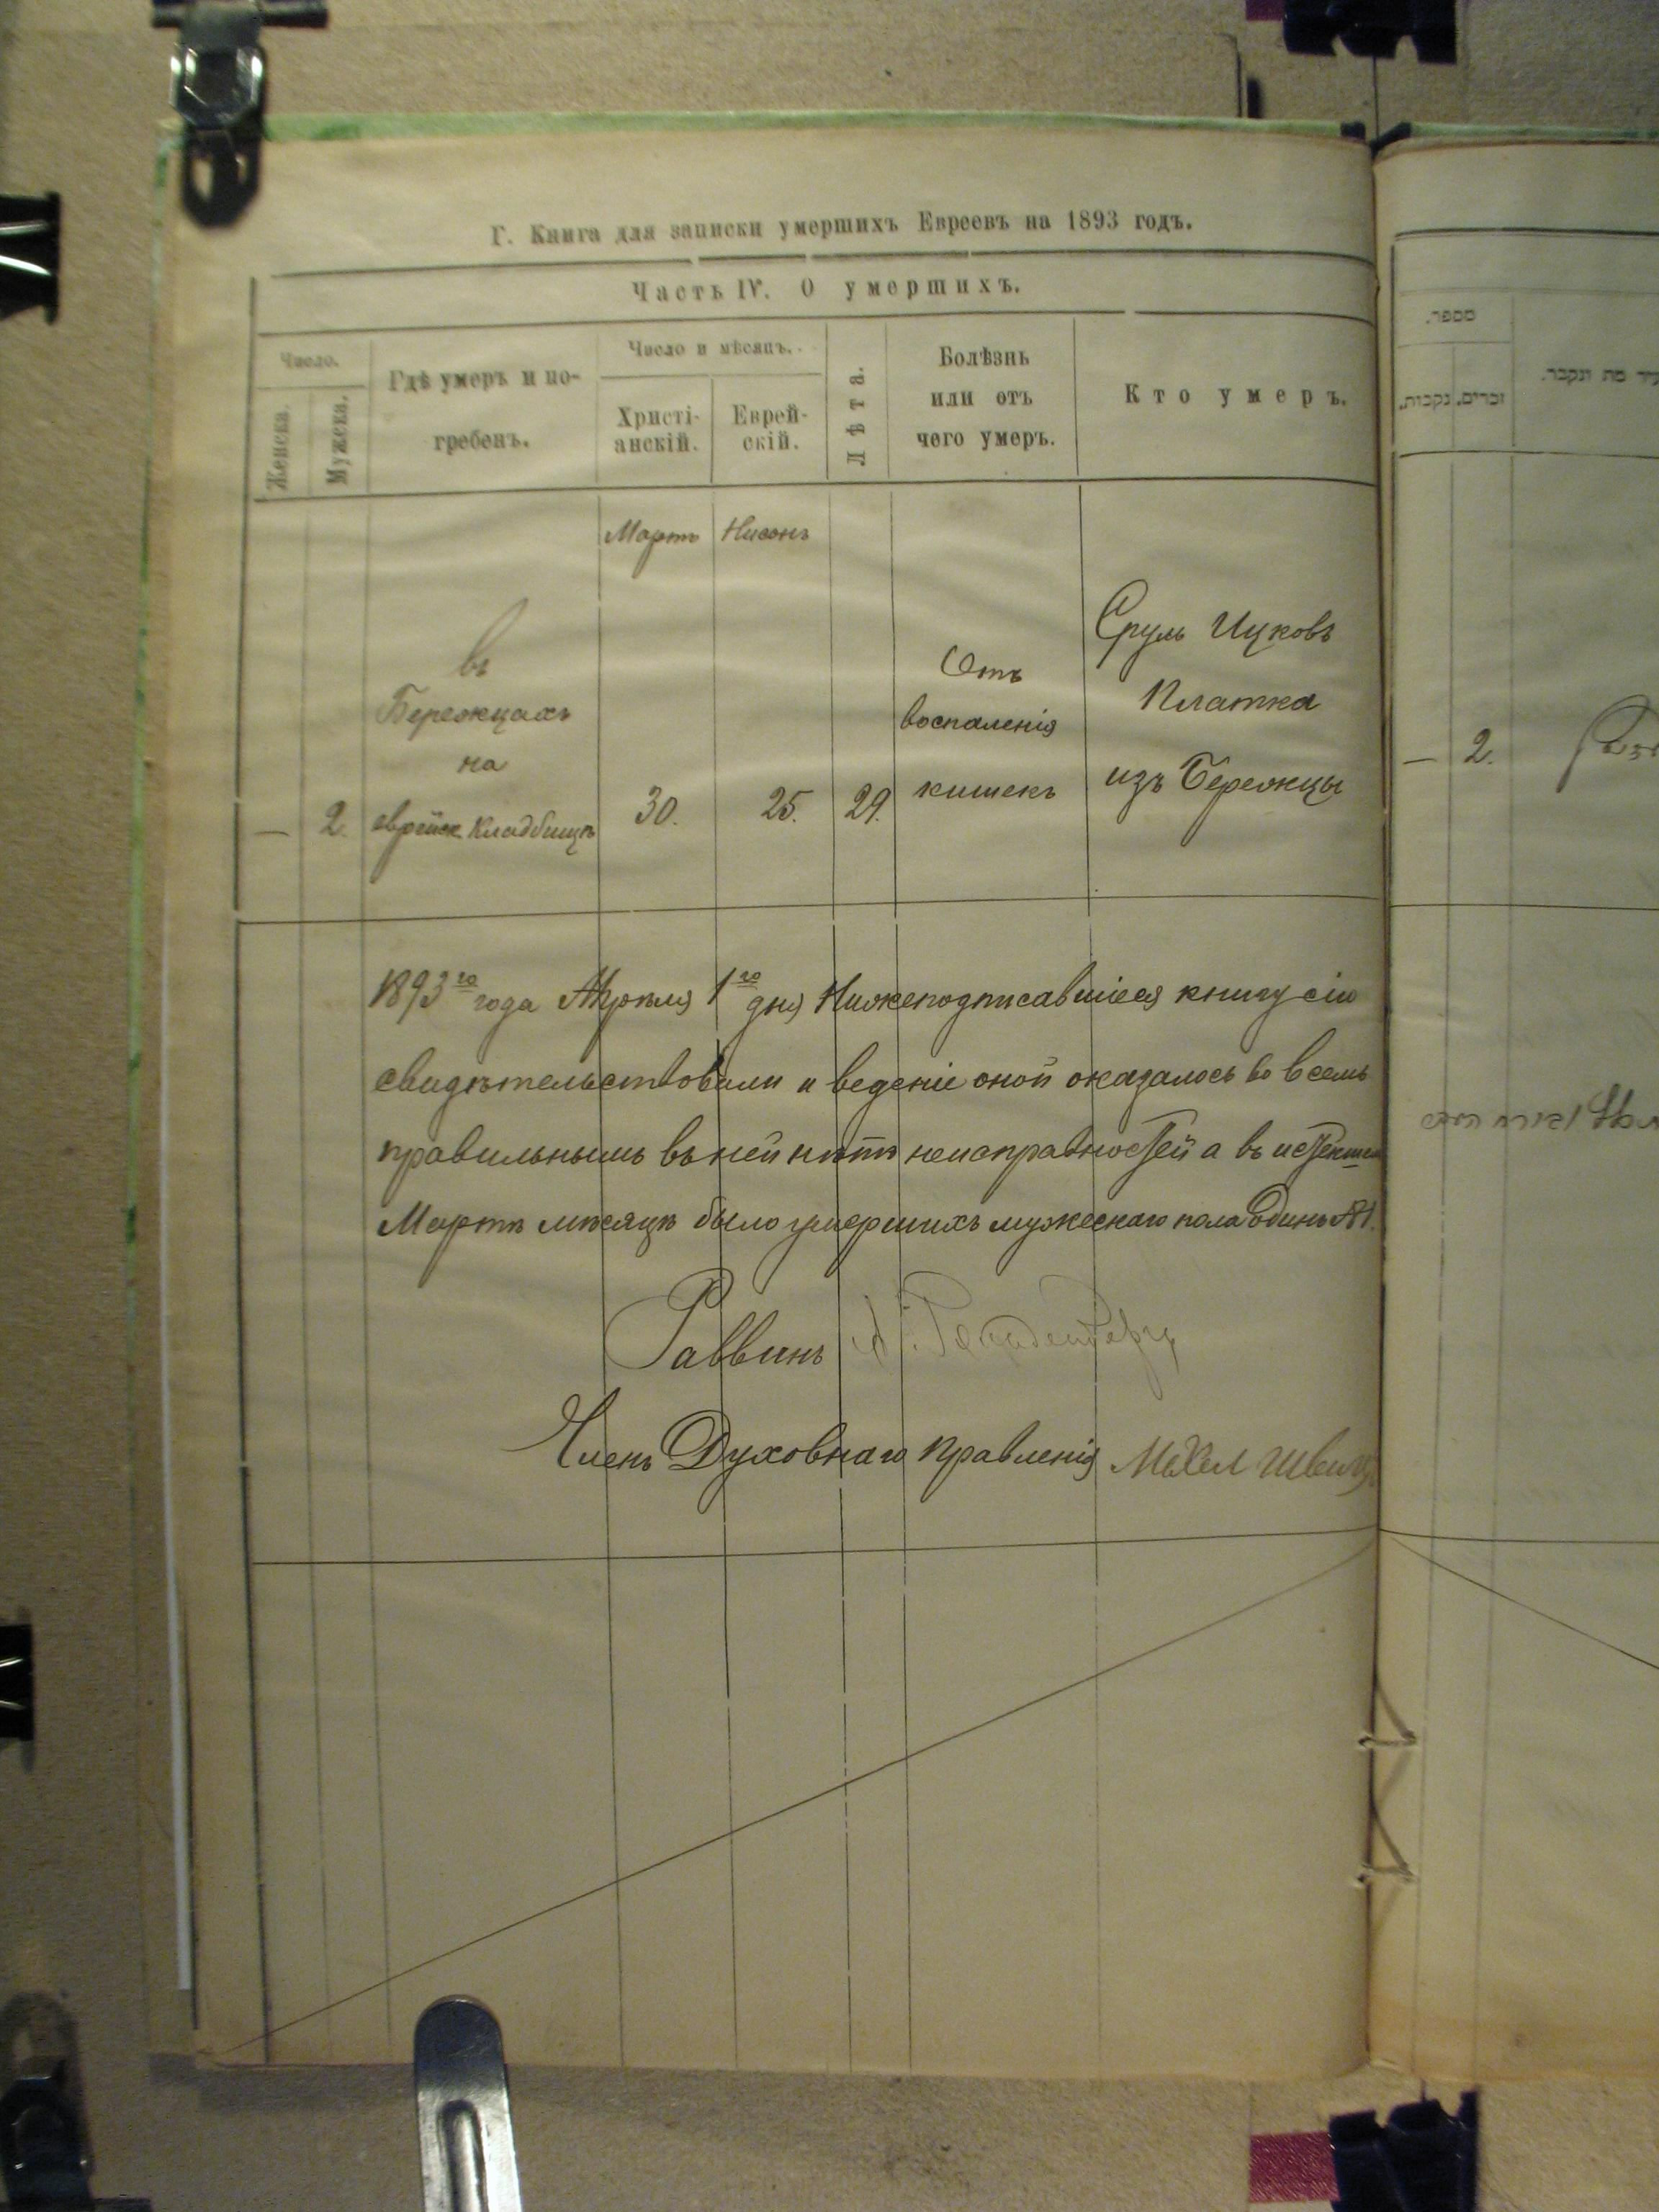 Г. Книга для записки умершихъ Евреевъ на 1893 годъ.
Часть IV. О умершихъ.
Число.
Женска.
Мужеска.
Гдѣ умеръ и по-
гребенъ.
Число и мѣсяцъ.
Христі-
анскій.
Еврей-
скій.
Лѣта.
Болѣзнь
или отъ
чего умеръ.
Кто умеръ.
Мартъ
Нисонъ
— 2.
въ
Бережцахъ
на
еврейск. Кладбищѣ
30.
25.
29.
Отъ
воспаленія
кишекъ
Сруль Ицковъ
Платка
изъ Бережцы
1893го года Апрѣля 1го дня Нижеподписавшіеся книгу сію
свидѣтельствовали и веденіе оной оказалось во всемъ
правильнымъ въ ней нѣтъ неисправностей а въ истекшем
Мартѣ мѣсяцѣ было умершихъ мужескаго пола Одинъ №1.
Раввинъ
Членъ Духовнаго Правленія
מספר.
זכרים.
נקבות.
— 2.